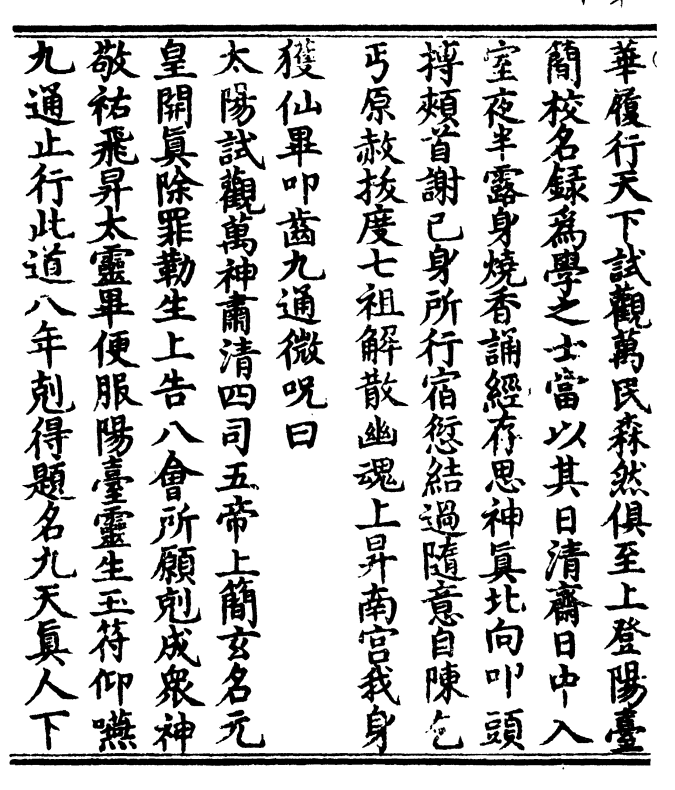 華履行天下試觀萬民森然俱至上登陽臺
簡校名録爲學之士當以其日清齋日中入
室夜半露身燒香誦經存思神真北向叩頭
搏頰首謝已身所行宿愆結過隨意自陳乞
丐原赦拔度七祖解散幽魂上昇南宫我身
獲仙畢叩齒九通微呪曰
太陽試觀萬神肅清四司五帝上簡玄名元
皇開真除罪勒生上告八會所願剋成衆神
敬祐飛昇太靈畢便服陽臺靈生玉符仰嚥
九通止行此道八年剋得題名九天真人下